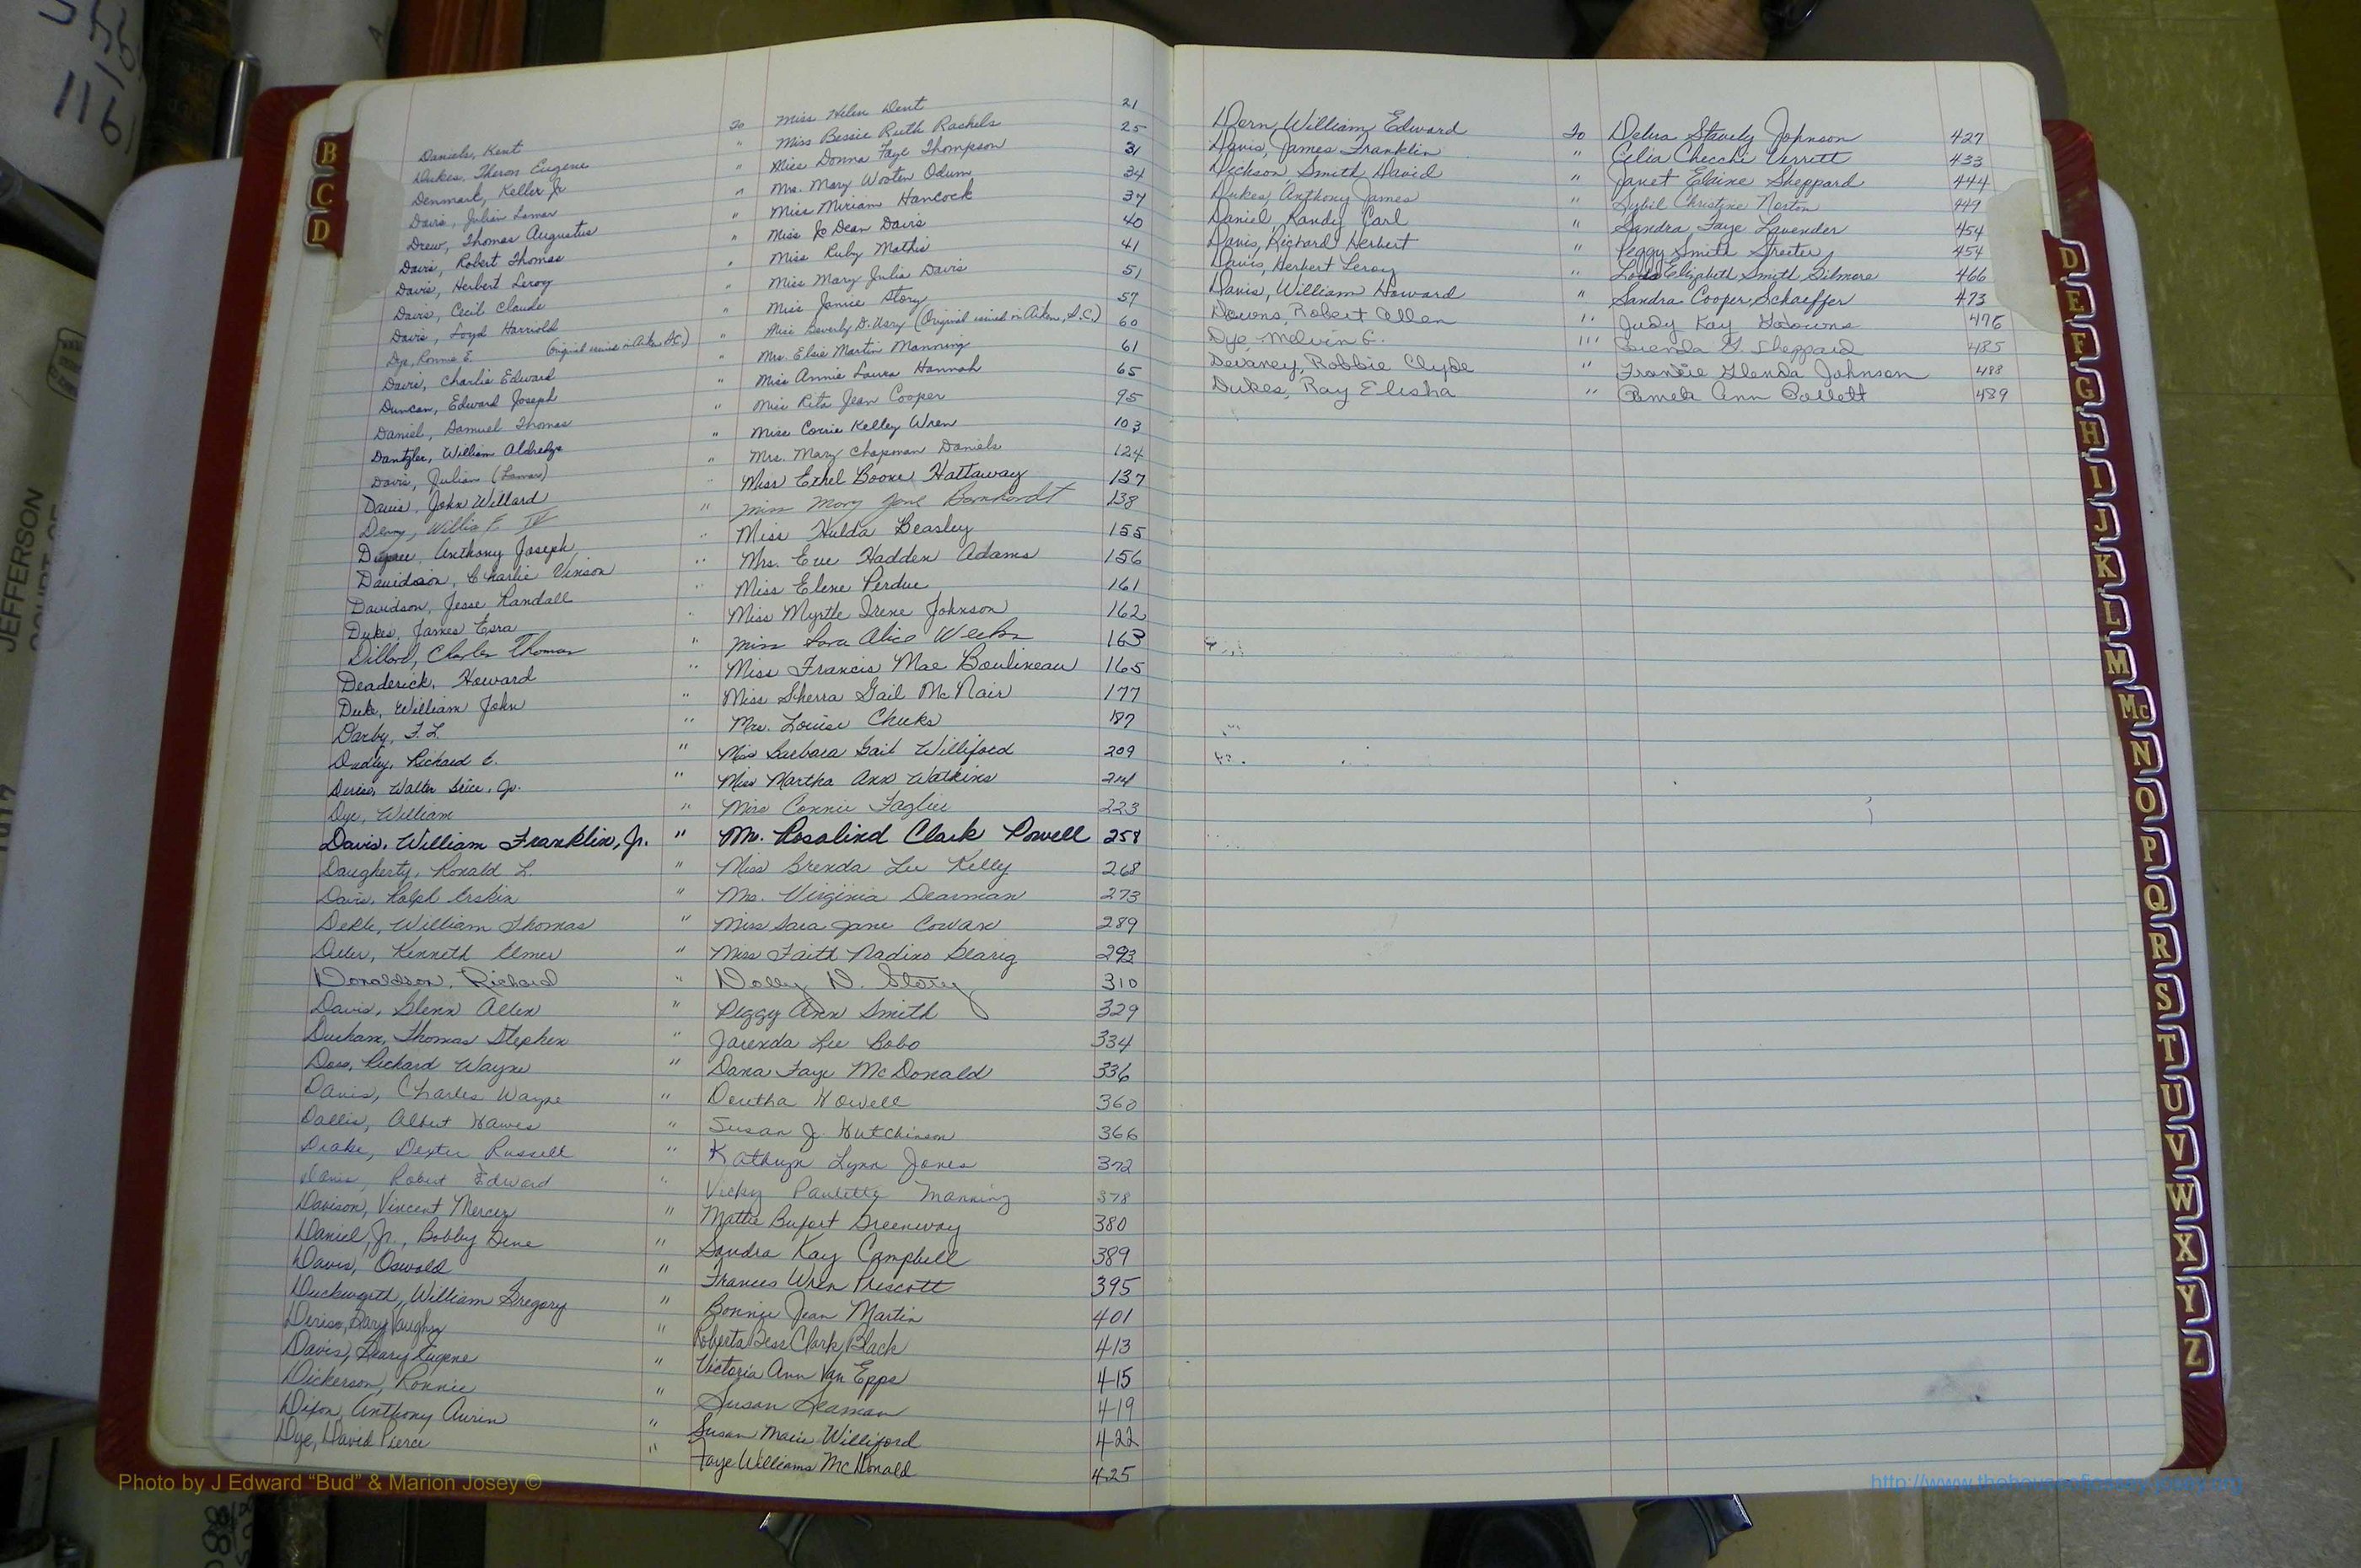 JEFFERSON
B
C
D
Daniels, Kent To Miss Helen Dent 21
Dukes, Theron Eugene " Miss Bessie Ruth Rachels 25
Denmark, Keller Jr " Miss Donna Faye Thompson 31
Davis, Julian Lamar " Mrs. Mary Wooten Odum 34
Drew, Thomas Augustus " Miss Miriam Hancock 37
Davis, Robert Thomas " Miss Jo Dean Davis 40
Davis, Herbert Leroy " Miss Ruby Mathis 41
Davis, Cecil Claude " Miss Mary Julia Davis 51
Davis, Loyd Harriold " Miss Janice Story 57
Dye, Ronnie E. (Original issued in Aiken, S.C.) " Miss Beverly D. Usry (Original issued in Aiken, S.C.) 60
Davis, Charlie Edward " Mrs. Elsie Martin Manning 61
Duncan, Edward Joseph " Miss Annie Laura Hannah 65
Daniel, Samuel Thomas " Miss Rita Jean Cooper 95
Dantzler, William Aldredge " Miss Corrie Kelley Wren 103
Davis, Julian (Lamar) " Mrs. Mary Chapman Daniels 124
Davis, John Willard " Miss Ethel Boone Hattaway 137
Denny, Willis F. IV " Miss Mary Jane Barnhardt 138
Dupree, Anthony Joseph " Miss Hulda Beasley 155
Davidson, Charlie Vinson " Mrs. Eve Hadden Adams 156
Davidson, Jesse Randall " Miss Elene Perdue 161
Dukes, James Ezra " Miss Myrtle Irene Johnson 162
Dillard, Charles Thomas " Miss Sara Alice Weeks 163
Deaderick, Howard " Miss Francis Mae Boulineau 165
Duke, William John " Miss Sherra Gail McNair 177
Darby, F. L. " Mrs. Louise Cheeks 187
Dudley, Richard C. " Miss Barbara Gail Williford 209
Deriso, Walter Brice, Jr. " Miss Martha Ann Watkins 214
Dye, William " Miss Connie Faglier 223
Davis, William Franklin, Jr. " Mrs. Rosalind Clark Powell 258
Daugherty, Ronald L. " Miss Brenda Lee Kelly 268
Davis, Ralph Erskin " Mrs. Virginia Dearman 273
Dekle, William Thomas " Miss Sara Jane Cowart 289
Kenneth Elmer " Miss Faith Nadine 293
Donaldson, Richard " Dolly D. Story 310
Davis, Glenn Allen " Peggy Ann Smith 329
Durham, Thomas Stephen " Jarenda Lee Bobo 334
Doss, Richard Wayne " Dana Faye McDonald 336
Davis, Charles Wayne " Deutha Howell 360
Dallis, Albert Hawes " Susan J. Hutchinson 366
Drake, Dexter Russell " Kathryn Lynn Jones 372
Davis, Robert Edward " Vicky Paulette Manning 378
Davison, Vincent Mercer " Mattie Bufort Greenway 380
Daniel, Jr., Bobby Gene " Sandra Kay Campbell 389
Davis, Oswald " Frances Wren Prescott 395
Duckworth, William Gregory " Bonnie Jean Martin 401
Deriso, Gary Vaughn " Roberta Bess Clark Black 413
Davis, Geary Eugene " Victoria Ann Van Epps 415
Dickerson, Ronnie " Susan Seaman 419
Dixon, Anthony Aurin " Susan Marie Williford 422
Dye, David Pierce " Faye Williams McDonald 425
Dern, William Edward To Debra Stavely Johnson 427
Davis, James Franklin " Celia Checchi Verrett 433
Dickson, Smith David " Janet Elaine Sheppard 444
Dukes, Anthony James " Sybil Christine Norton 449
Daniel, Randy Carl " Sandra Faye Lavender 454
Davis, Richard Herbert " Peggy Smith Streeter 454
Davis, Herbert Leroy " Elizabeth Smith Gilmore 466
Davis, William Howard " Sandra Cooper Schaeffer 473
Downs, Robert Allen " Judy Kay 476
Dye, Melvin G. " Brenda G. Sheppard 485
Devaney, Robbie Clyde " Francie Glenda Johnson 488
Dukes, Ray Elisha " Pamela Ann 489
D
E
F
G
H
I
J
K
L
M
Mc
N
O
P
Q
R
S
T
U
V
W
X
Y
Z
Photo by J Edward “Bud” & Marion Josey ©